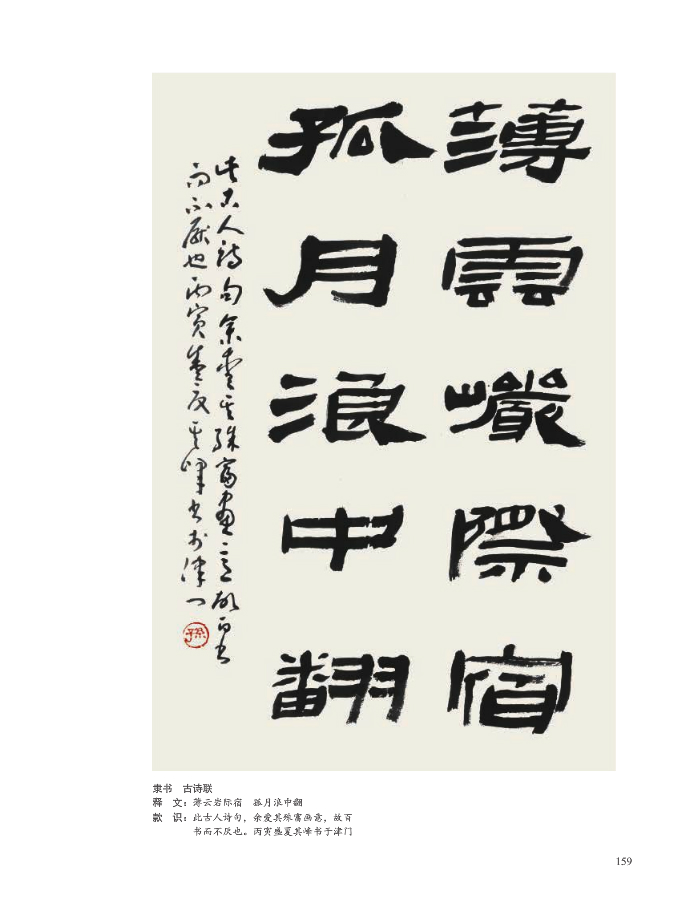 薄雲巖際宿
孤月浪中翻
此古人詩句余爱其殊富畫意故百书
而不厭也丙寅盛夏其峰书于津门
孫
隶书　古诗联
释　文：薄云岩际宿　孤月浪中翻
款　识：此古人诗句，余爱其殊富画意，故百
书而不厌也。丙寅盛夏其峰书于津门
159